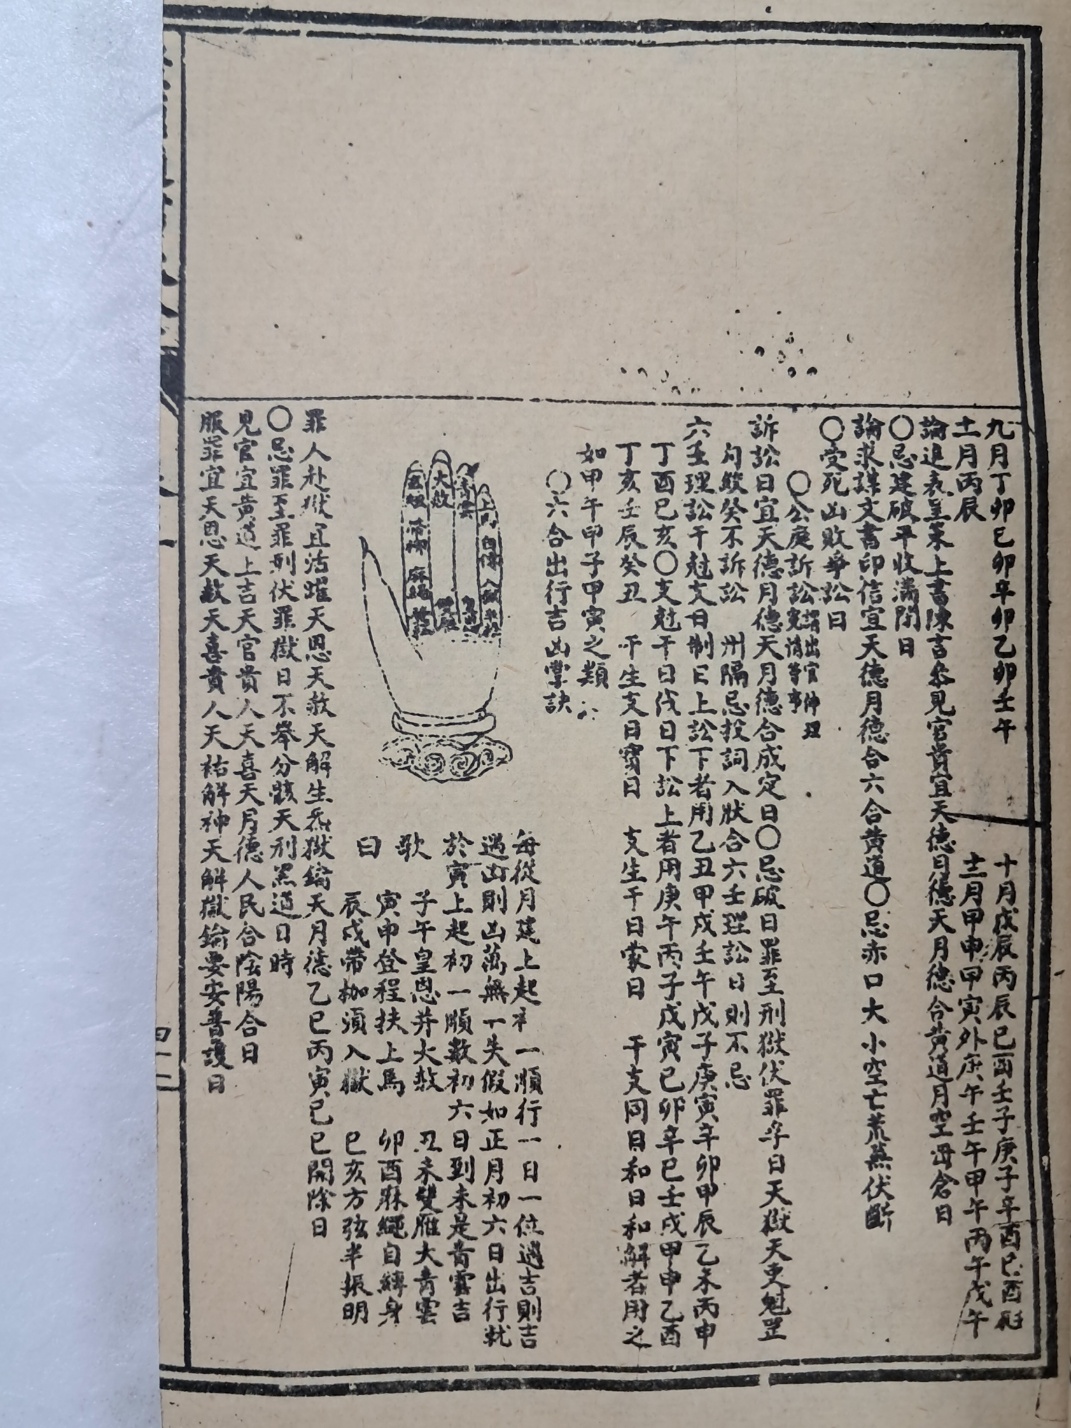 九月丁卯己卯辛卯乙卯壬午　十月戊辰丙辰己酉壬子庚子辛酉己酉
十一月丙辰　十二月甲申甲寅外庚午壬午甲午丙午戊午
論進表呈來上書陳言參見官貴宜天德月德天月德合黃道月空母倉日
○忌建破平收滿閉日
論求謀文書印信宜天德月德合六合黃道○忌赤口大小空亡荒蕪伏斷
○受死凶敗爭訟日
○公庭訴訟
訴訟日宜天德月德天月德合成定日○忌破日罪至刑獄伏罪孛日天獄天吏魁罡
勾絞癸不訴訟　州隅忌投詞入狀合六壬理訟日則不忌
六壬理訟干尅支日制日上訟下者用乙丑甲戌壬午戊子庚寅辛卯甲辰乙未丙申
丁酉己亥○支尅干日伐日下訟上者用庚午丙子戊寅己卯辛巳壬戌甲申乙酉
丁亥壬辰癸丑　干生支日寶日　支生干日蒙日　干支同日和日和解者用之
如甲午甲子甲寅之類
○六合出行吉凶掌訣
大赦
每從月建上起初一順行一日一位遇吉則吉
遇凶則凶萬無一失假如正月初六日出行就
於寅上起初一順數初六日到未是青雲吉
歌曰
子午皇恩并大赦　丑未雙雁大青雲
寅申登程扶上馬　卯酉麻繩自縛身
辰戌帶枷須入獄　巳亥方弦半振明
罪人赴獄宜活躍天恩天赦天解生炁獄鑰天月德乙巳丙寅己巳開除日
○忌罪至罪刑伏罪獄日不舉分骸天刑黑道日時
見官宜黃道上吉天官貴人天喜天月德人民合陰陽合日
服罪宜天恩天赦天喜貴人天祐解神天解獄鑰要安普護日